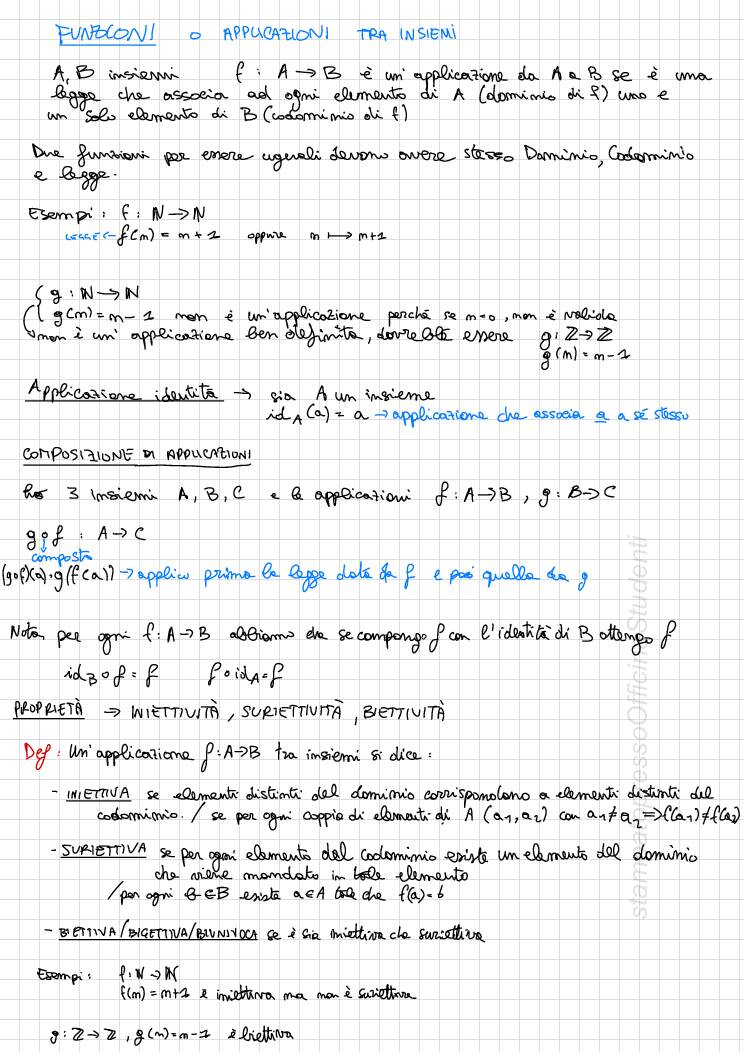 FUNZIONI o APPLICAZIONI TRA INSIEMI
A, B insiemi f : A → B è un'applicazione da A a B se è una
legge che associa ad ogni elemento di A (dominio di f) uno e
un solo elemento di B (codominio di f)
Due funzioni per essere uguali devono avere stesso Dominio, Codominio
e legge.
Esempi : f : ℕ → ℕ
LEGGE ← f(m) = m + 1 oppure m ⟼ m+1
g : ℕ → ℕ
g(m) = m - 1 non è un'applicazione perché se m=0, non è valida
non è un'applicazione ben definita, dovrebbe essere g : ℤ → ℤ
g(m) = m - 1
Applicazione identità → sia A un insieme
id_A(a) = a → applicazione che associa a a sé stesso
COMPOSIZIONE DI APPLICAZIONI
ho 3 insiemi A, B, C e le applicazioni f : A → B , g : B → C
g o f : A → C
composto
(gof)(a) = g(f(a)) → applico prima la legge data da f e poi quella da g
Nota, per ogni f : A → B abbiamo che se compongo f con l'identità di B ottengo f
id_B o f = f f o id_A = f
PROPRIETÀ → INIETTIVITÀ , SURIETTIVITÀ , BIETTIVITÀ
Def : Un'applicazione f : A → B tra insiemi si dice :
- INIETTIVA se elementi distinti del dominio corrispondono a elementi distinti del
codominio. / se per ogni coppia di elementi di A (a₁, a₂) con a₁ ≠ a₂ ⇒ f(a₁) ≠ f(a₂)
- SURIETTIVA se per ogni elemento del codominio esiste un elemento del dominio
che viene mandato in tale elemento
/ per ogni b ∈ B esiste a ∈ A tale che f(a) = b
- BIETTIVA / BIGETTIVA / BIUNIVOCA se è sia iniettiva che suriettiva
Esempi : f : ℕ → ℕ
f(m) = m+1 è iniettiva ma non è suriettiva
g : ℤ → ℤ , g(m) = m - 1 è biettiva